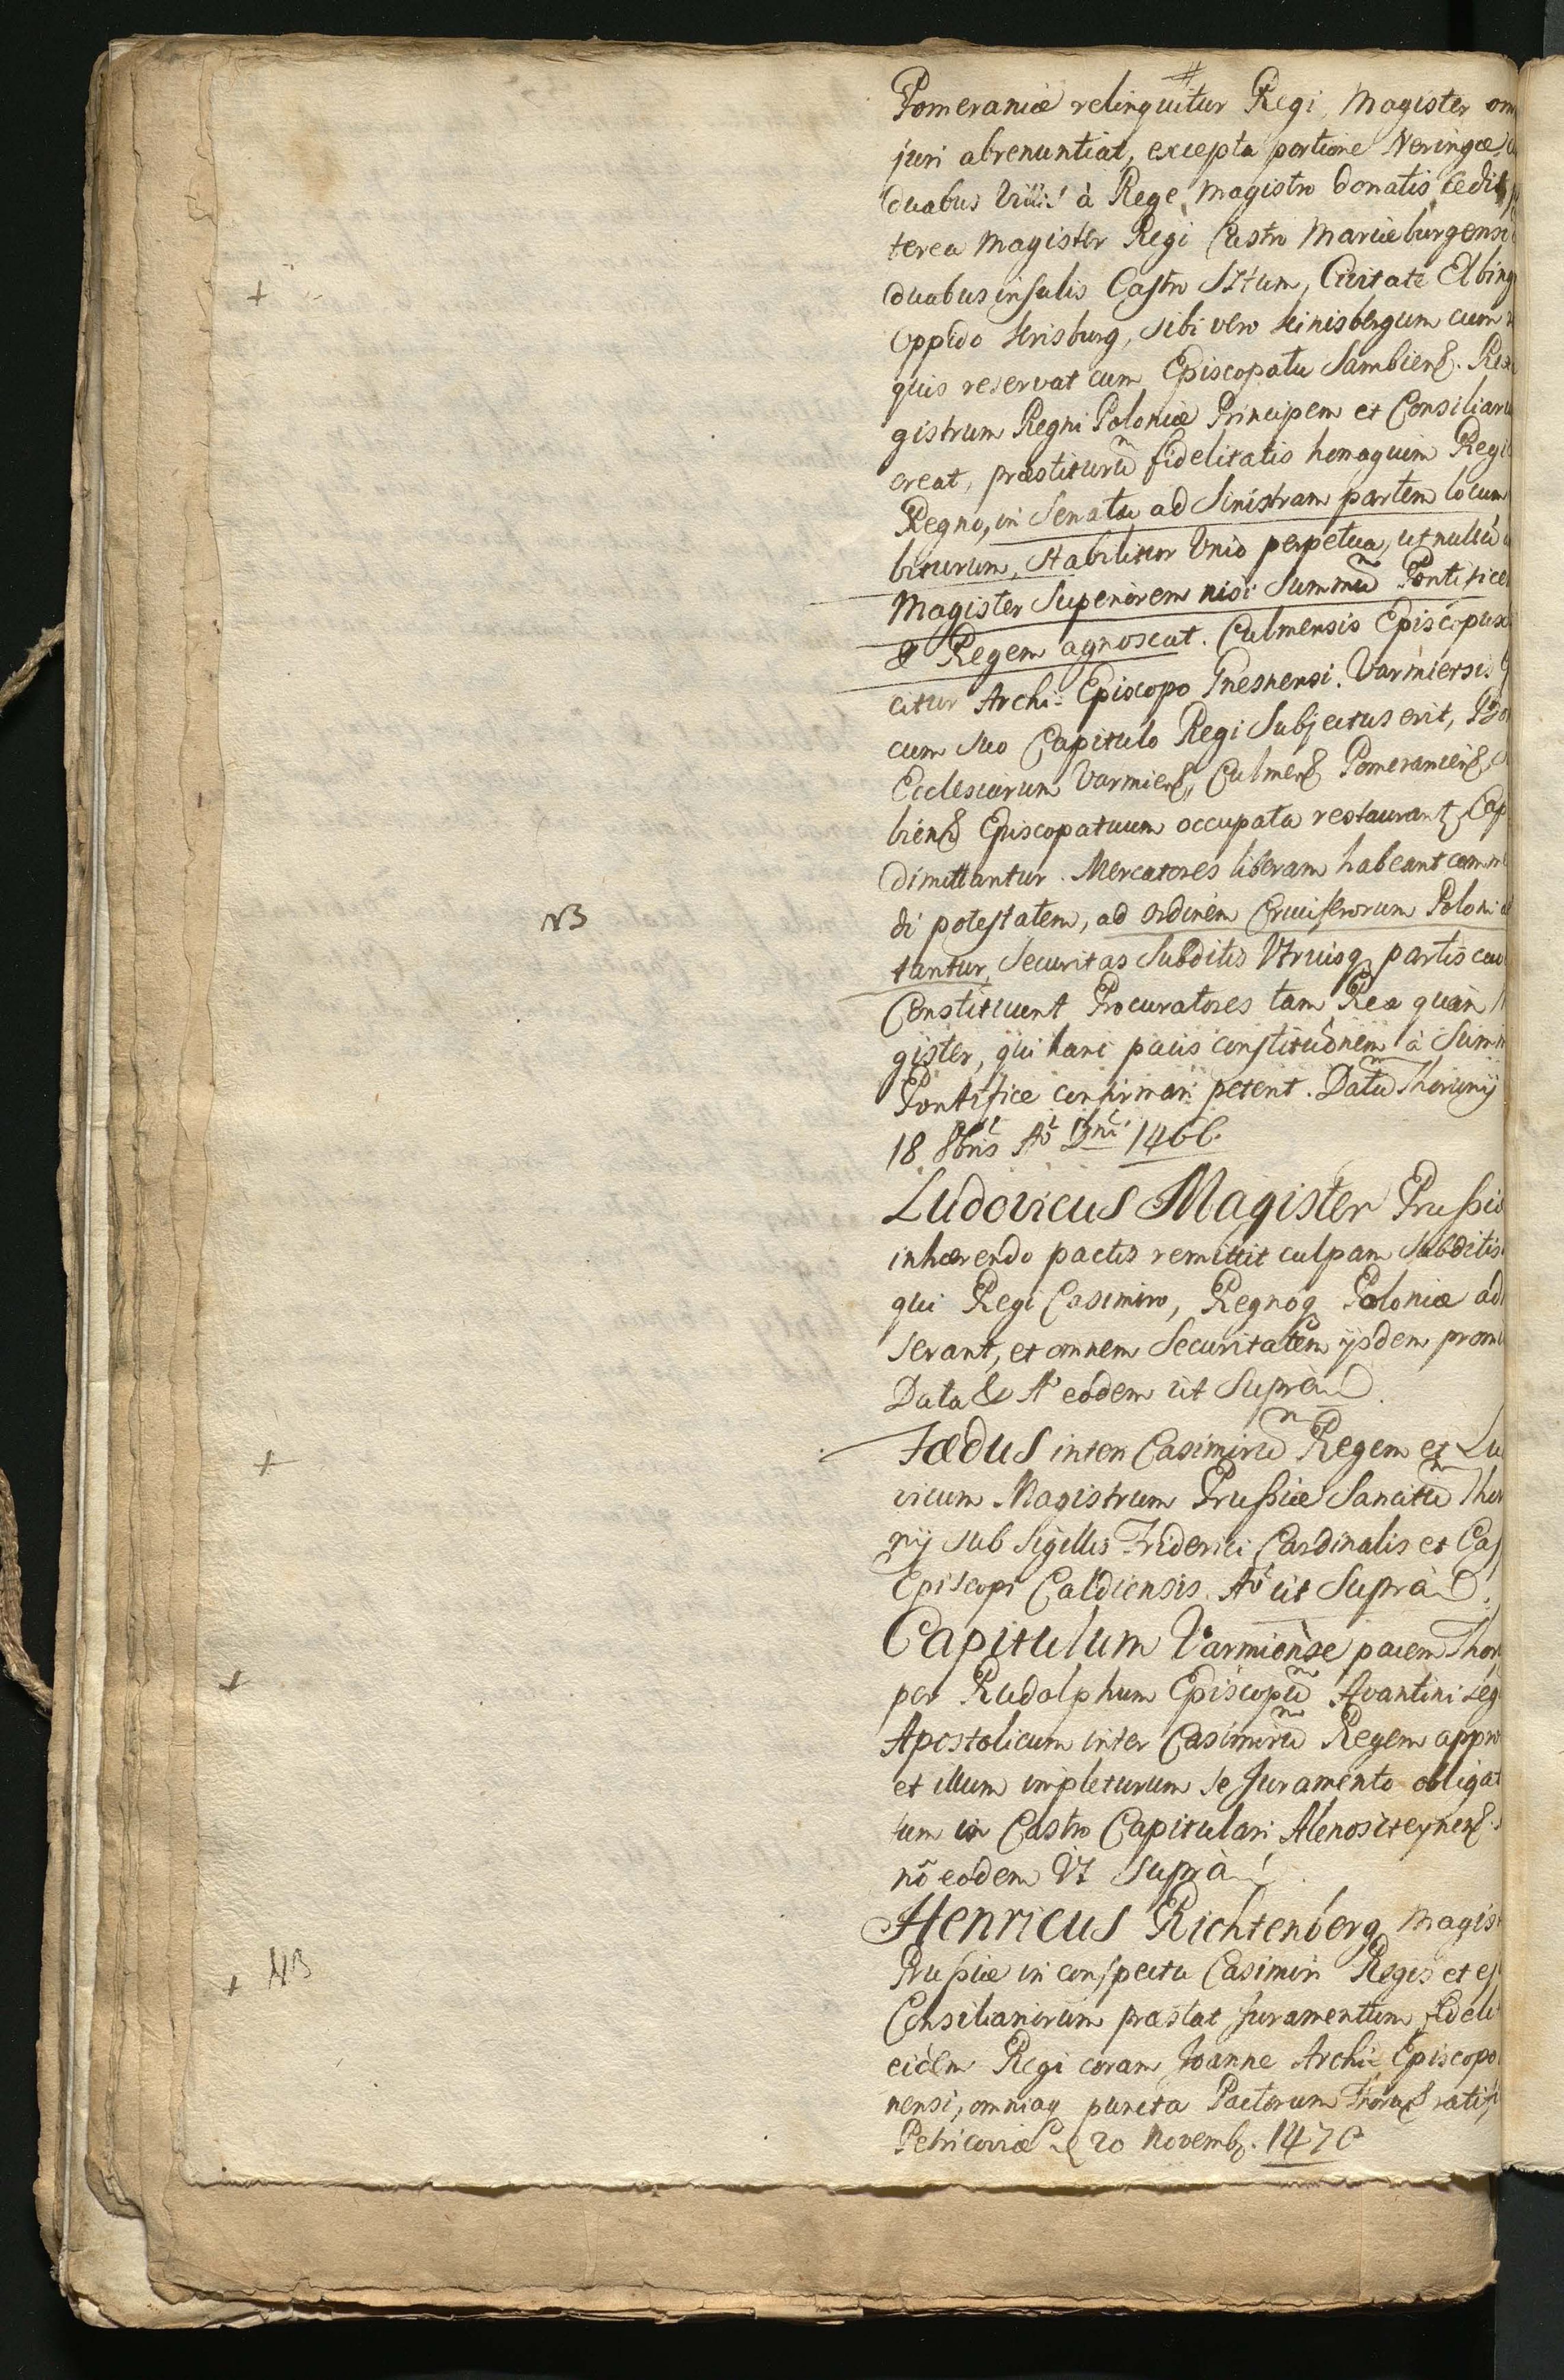 Pomeraniæ relinquitur Regi, Magister om
juri abrenuntiat, excepta portione Neringæ,
duabus Villis à Rege Magistro donatis, cedit
terea Magister Regi Castro Mariæburgensi
+ duabus insulis Castro Sztum, Civitate Elbing
oppido Krisburg, sibi vero Kinisbergum cum
quis reservat cum Episcopatu Sambiens. Rex
gistrum Regni Poloniæ Principem et Consiliariu
creat, præstiturũ fidelitatis homagium Regi
Regno, in Senatu ad Sinistram partem locum
biturum, Stabilitur Unio perpetua, ut nullũ
Magister Superiorem nisi Summũ Pontifice
& Regem agnoscat. Culmensis Episcopus
citur Archi-Episcopo Gnesnensi. Varmiensis
cum suo Capitulo Regi Subjectus erit,
Ecclesiarum Varmiens, Culmens Pomeraniens,
biens Episcopatuum occupata restaurant, Cap
dimittantur. Mercatores liberam habeant comme
NB di potestatem, ad Ordinem Cruciferorum Poloni
tantur, Securitas Subditis Utriusq partis cau
Constituunt Procuratores tam Rex quàm
gister, qui hanc pacis constitutionem à Summ
Pontifice confirmari petent. Datũ Thorunij
18 8bris Aõ Dni 1466.
Ludovicus Magister Prussiæ
inhærendo pactis remittit culpam Subditis
qui Regi Casimiro, Regnoq Poloniæ ad
serant, et omnem Securitatem ijsdem prom
Data & Aõ eodem ut Suprà
+ Fœdus inter Casimirũ Regem et Lu
vicum Magistrum Prussiæ Sancitũ Thor
nij sub Sigillis Friderici Cardinalis et Cas
Episcopi Caldiensis Aõ ut Suprà
Capitulum Varmiense pacem Thor
+ per Rudolphum Episcopũ Avantini Leg
Apostolicum inter Casimirũ Regem appro
et illum impleturum se Juramento obligat
tum in Castro Capitulari Alenositeynens.
nõ eodem Ut Suprà
Henricus Richtenberg Magist
+ NB Prussiæ in conspectu Casimiri Regis et ej
Consiliariorum præstat Juramentum fideli
eidem Regi coram Joanne Archi-Episcopo
nensi, omniaq puncta Pactorum Thorun ratifi
Petricoviæ 20 Novemb. 1470